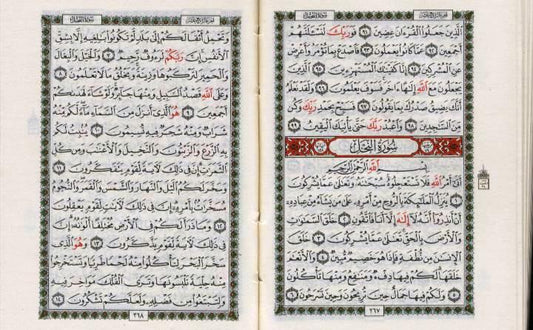 سورة الحجر
ٱلَّذِينَ جَعَلُوا۟ ٱلْقُرْءَانَ عِضِينَ ٩١ فَوَرَبِّكَ لَنَسْـَٔلَنَّهُمْ
أَجْمَعِينَ ٩٢ عَمَّا كَانُوا۟ يَعْمَلُونَ ٩٣ فَٱصْدَعْ بِمَا تُؤْمَرُ وَأَعْرِضْ
عَنِ ٱلْمُشْرِكِينَ ٩٤ إِنَّا كَفَيْنَـٰكَ ٱلْمُسْتَهْزِءِينَ ٩٥ ٱلَّذِينَ
يَجْعَلُونَ مَعَ ٱللَّهِ إِلَـٰهًا ءَاخَرَ فَسَوْفَ يَعْلَمُونَ ٩٦ وَلَقَدْ نَعْلَمُ
أَنَّكَ يَضِيقُ صَدْرُكَ بِمَا يَقُولُونَ ٩٧ فَسَبِّحْ بِحَمْدِ رَبِّكَ وَكُن
مِّنَ ٱلسَّـٰجِدِينَ ٩٨ وَٱعْبُدْ رَبَّكَ حَتَّىٰ يَأْتِيَكَ ٱلْيَقِينُ ٩٩
سُورَةُ النَّحْلِ
بِسْمِ ٱللَّهِ ٱلرَّحْمَـٰنِ ٱلرَّحِيمِ
أَتَىٰٓ أَمْرُ ٱللَّهِ فَلَا تَسْتَعْجِلُوهُ سُبْحَـٰنَهُۥ وَتَعَـٰلَىٰ عَمَّا يُشْرِكُونَ
١ يُنَزِّلُ ٱلْمَلَـٰٓئِكَةَ بِٱلرُّوحِ مِنْ أَمْرِهِۦ عَلَىٰ مَن يَشَآءُ مِنْ عِبَادِهِۦٓ
أَنْ أَنذِرُوٓا۟ أَنَّهُۥ لَآ إِلَـٰهَ إِلَّآ أَنَا۠ فَٱتَّقُونِ ٢ خَلَقَ ٱلسَّمَـٰوَٰتِ
وَٱلْأَرْضَ بِٱلْحَقِّ تَعَـٰلَىٰ عَمَّا يُشْرِكُونَ ٣ خَلَقَ
ٱلْإِنسَـٰنَ مِن نُّطْفَةٍ فَإِذَا هُوَ خَصِيمٌ مُّبِينٌ ٤ وَٱلْأَنْعَـٰمَ
خَلَقَهَا لَكُمْ فِيهَا دِفْءٌ وَمَنَـٰفِعُ وَمِنْهَا تَأْكُلُونَ
٥ وَلَكُمْ فِيهَا جَمَالٌ حِينَ تُرِيحُونَ وَحِينَ تَسْرَحُونَ ٦
٢٦٧
وَتَحْمِلُ أَثْقَالَكُمْ إِلَىٰ بَلَدٍ لَّمْ تَكُونُوا۟ بَـٰلِغِيهِ إِلَّا بِشِقِّ
ٱلْأَنفُسِ إِنَّ رَبَّكُمْ لَرَءُوفٌ رَّحِيمٌ ٧ وَٱلْخَيْلَ وَٱلْبِغَالَ
وَٱلْحَمِيرَ لِتَرْكَبُوهَا وَزِينَةً وَيَخْلُقُ مَا لَا تَعْلَمُونَ ٨
وَعَلَى ٱللَّهِ قَصْدُ ٱلسَّبِيلِ وَمِنْهَا جَآئِرٌ وَلَوْ شَآءَ لَهَدَىٰكُمْ
أَجْمَعِينَ ٩ هُوَ ٱلَّذِىٓ أَنزَلَ مِنَ ٱلسَّمَآءِ مَآءً لَّكُم مِّنْهُ
شَرَابٌ وَمِنْهُ شَجَرٌ فِيهِ تُسِيمُونَ ١٠ يُنۢبِتُ لَكُم
بِهِ ٱلزَّرْعَ وَٱلزَّيْتُونَ وَٱلنَّخِيلَ وَٱلْأَعْنَـٰبَ وَمِن كُلِّ
ٱلثَّمَرَٰتِ إِنَّ فِى ذَٰلِكَ لَـَٔايَةً لِّقَوْمٍ يَتَفَكَّرُونَ ١١
وَسَخَّرَ لَكُمُ ٱلَّيْلَ وَٱلنَّهَارَ وَٱلشَّمْسَ وَٱلْقَمَرَ وَٱلنُّجُومُ
مُسَخَّرَٰتٌۢ بِأَمْرِهِۦٓ إِنَّ فِى ذَٰلِكَ لَـَٔايَـٰتٍ لِّقَوْمٍ يَعْقِلُونَ
١٢ وَمَا ذَرَأَ لَكُمْ فِى ٱلْأَرْضِ مُخْتَلِفًا أَلْوَٰنُهُۥٓ إِنَّ
فِى ذَٰلِكَ لَـَٔايَةً لِّقَوْمٍ يَذَّكَّرُونَ ١٣ وَهُوَ ٱلَّذِى
سَخَّرَ ٱلْبَحْرَ لِتَأْكُلُوا۟ مِنْهُ لَحْمًا طَرِيًّا وَتَسْتَخْرِجُوا۟
مِنْهُ حِلْيَةً تَلْبَسُونَهَا وَتَرَى ٱلْفُلْكَ مَوَاخِرَ فِيهِ
وَلِتَبْتَغُوا۟ مِن فَضْلِهِۦ وَلَعَلَّكُمْ تَشْكُرُونَ ١٤
٢٦٨